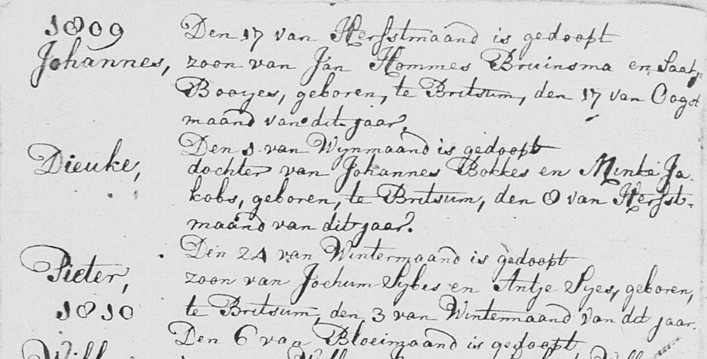 1809 Den 17 van Herfstmaand is gedoopt
Johannes, zoon van Jan Hommes Bruinsma en
Booyes, geboren, te Britsum, den 17 van Oogst
maand van dit jaar.
Den 1 van Wynmaand is gedoopt
Dieuke, dochter van Johannes Bokkes en Minke Ja
kobs, geboren, te Britsum, den 8 van Herfst-
maand van dit jaar.
Den 24 van Wintermaand is gedoopt
Pieter, zoon van Jochum Sybes en Antje Syes, geboren,
1810 te Britsum, den 3 van Wintermaand van dit jaar.
Den 6 van Bloeimaand is gedoopt